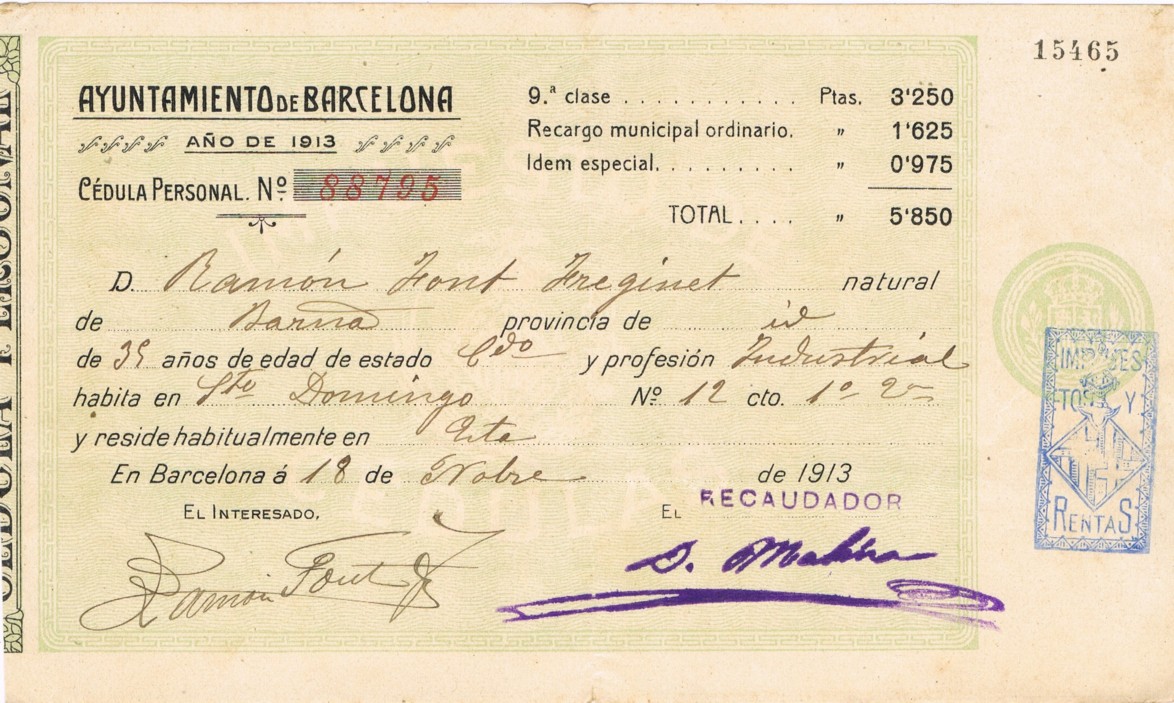 15465
AYUNTAMIENTO DE BARCELONA
AÑO DE 1913
CÉDULA PERSONAL. Nº 88795
9.ª clase . . . . . . . . . . . Ptas. 3'250
Recargo municipal ordinario. " 1'625
Idem especial. . . . . . . . . " 0'975
TOTAL . . . . " 5'850
D. Ramón Font Freginet natural
de Barna provincia de id
de 35 años de edad de estado Cdo y profesión Industrial
habita en Sto Domingo Nº 12 cto. 1º 2ª
y reside habitualmente en
En Barcelona á 18 de Nobre de 1913
EL INTERESADO, EL RECAUDADOR
Ramón Font
IMPUES
TOS Y
RENTAS